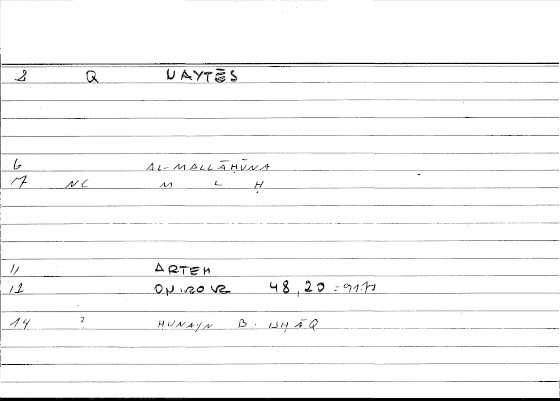 2 Q NAYTĒS
6 AL-MALLĀḤŪNA
7 NC M L Ḥ
11 ARTEM
12 ONIROCR 48,20 : 91.17
14 ? ḤUNAYN B. ISḤĀQ